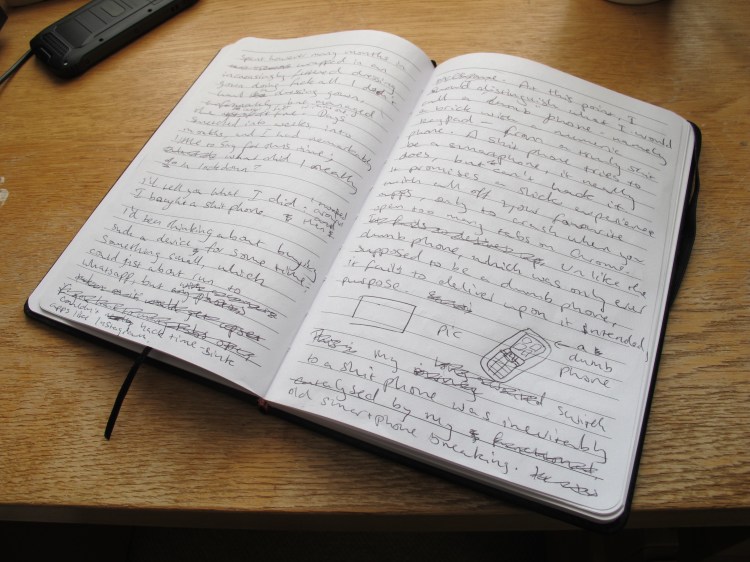 Spent however many months to
wrapped in an
increasingly tattered dressing
gown doing fuck all. I don't
dressing gown
but managed
that time. Days
into weeks into
months, and I had remarkably
little to say for this time;
what did I really
do in lockdown?
I'll tell you what I did.
I bought a shit phone.
I'd been thinking about buying
such a device for some time:
something small, which
could just about run
whatsapp, but
couldn't hack time-sink
apps like Instagram.
At this point, I
would distinguish what I would
call a dumb phone - namely
a brick with a numeric
keypad - from a truly shit
phone. A shit phone tries to
be a smartphone, it really
does, but can't hack it.
It promises a slick experience
with all of your favourite
apps, only to crash when you
open too many tabs on Chrome.
Unlike the
dumb phone, which was only ever
supposed to be a dumb phone,
it fails to deliver on its intended
purpose.
Pic
← a
dumb
phone
my switch
to a shit phone was inevitably
catalysed by my
old smartphone breaking.